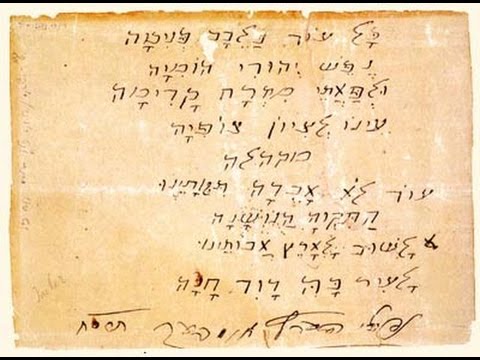 כָּל עוֹד בַּלֵּבָב פְּנִימָה
נֶפֶשׁ יְהוּדִי הוֹמִיָּה
וּלְפַאֲתֵי מִזְרָח קָדִימָה
עֵינוֹ לְצִיּוֹן צוֹפִיָּה
מקהלה
עוֹד לֹא אָבְדָה תִּקְוָתֵינוּ
הַתִּקְוָה הַנּוֹשָׁנָה
לָשׁוּב לָאָרֶץ אֲבוֹתֵינוּ
לָעִיר בָּהּ דָּוִד חָנָה
נפתלי הערץ אימבער תרס״ח
Imber